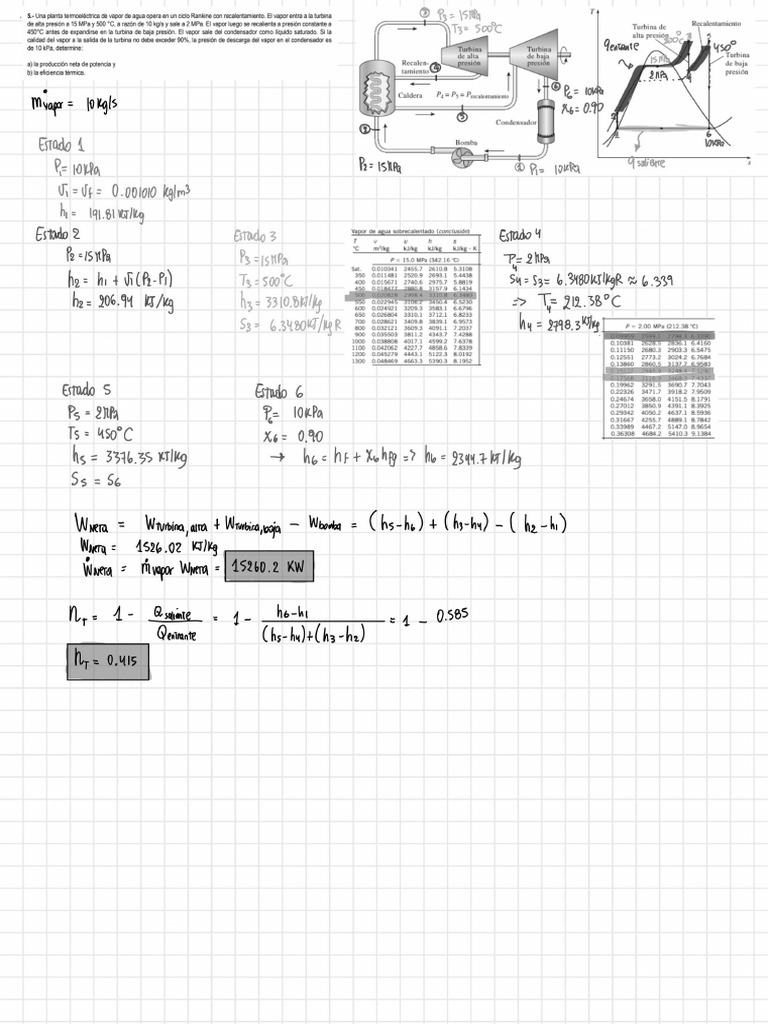 5.- Una planta termoeléctrica de vapor de agua opera en un ciclo Rankine con recalentamiento. El vapor entra a la turbina
de alta presión a 15 MPa y 500 °C, a razón de 10 kg/s y sale a 2 MPa. El vapor luego se recalienta a presión constante a
450°C antes de expandirse en la turbina de baja presión. El vapor sale del condensador como líquido saturado. Si la
calidad del vapor a la salida de la turbina no debe exceder 90%, la presión de descarga del vapor en el condensador es
de 10 kPa, determine:
a) la producción neta de potencia y
b) la eficiencia térmica.
ṁvapor = 10 kg/s
③ P3 = 15 MPa
T3 = 500°C
Turbina
de alta
presión
Turbina
de baja
presión
Recalen-
tamiento
④
Caldera
P4 = P5 = Precalentamiento
⑤
⑥
P6 = 10 kPa
x6 = 0.90
Condensador
②
P2 = 15 MPa
Bomba
① P1 = 10 kPa
T
Turbina de
alta presión
Recalentamiento
qentrante
15 MPa
500°C
3
5
450°
2 MPa
4
Turbina
de baja
presión
2
1
6
10 kPa
qsaliente
s
Estado 1
P1 = 10 kPa
v1 = vf = 0.001010 kg/m³
h1 = 191.81 KJ/kg
Estado 2
P2 = 15 MPa
h2 = h1 + v1 (P2 - P1)
h2 = 206.94 KJ/kg
Estado 3
P3 = 15 MPa
T3 = 500°C
h3 = 3310.8 KJ/kg
S3 = 6.3480 KJ/kg R
Vapor de agua sobrecalentado (conclusión)
T v u h s
°C m³/kg kJ/kg kJ/kg kJ/kg · K
P = 15.0 MPa (342.16 °C)
Sat. 0.010341 2455.7 2610.8 5.3108
350 0.011481 2520.9 2693.1 5.4438
400 0.015671 2740.6 2975.7 5.8819
450 0.018477 2880.8 3157.9 6.1434
500 0.020828 2998.4 3310.8 6.3480
550 0.022945 3106.2 3450.4 6.5230
600 0.024921 3209.3 3583.1 6.6796
650 0.026804 3310.1 3712.1 6.8233
700 0.028621 3409.8 3839.1 6.9573
800 0.032121 3609.3 4091.1 7.2037
900 0.035503 3811.2 4343.7 7.4288
1000 0.038808 4017.1 4599.2 7.6378
1100 0.042062 4227.7 4858.6 7.8339
1200 0.045279 4443.1 5122.3 8.0192
1300 0.048469 4663.3 5390.3 8.1952
Estado 4
P4 = 2 MPa
S4 = S3 = 6.3480 KJ/kg R ≈ 6.339
=> T4 = 212.38°C
h4 = 2798.3 KJ/kg
P = 2.00 MPa (212.38 °C)
0.10381 2628.5 2836.1 6.4160
0.11150 2680.3 2903.3 6.5475
0.12551 2773.2 3024.2 6.7684
0.13860 2860.5 3137.7 6.9583
0.19962 3291.5 3690.7 7.7043
0.22326 3471.7 3918.2 7.9509
0.24674 3658.0 4151.5 8.1791
0.27012 3850.9 4391.1 8.3925
0.29342 4050.2 4637.1 8.5936
0.31667 4255.7 4889.1 8.7842
0.33989 4467.2 5147.0 8.9654
0.36308 4684.2 5410.3 9.1384
Estado 5
P5 = 2 MPa
T5 = 450°C
h5 = 3376.35 KJ/kg
S5 = S6
Estado 6
P6 = 10 kPa
x6 = 0.90
→ h6 = hf + x6 hfg => h6 = 2344.7 KJ/kg
WNETA = WTurbina, alta + WTurbina, baja - Wbomba = (h5-h6) + (h3-h4) - (h2-h1)
WNETA = 1526.02 KJ/kg
ẆNETA = ṁvapor WNETA = 15260.2 KW
nT = 1 - Qsaliente / Qentrante = 1 - h6-h1 / (h5-h4)+(h3-h2) = 1 - 0.585
nT = 0.415